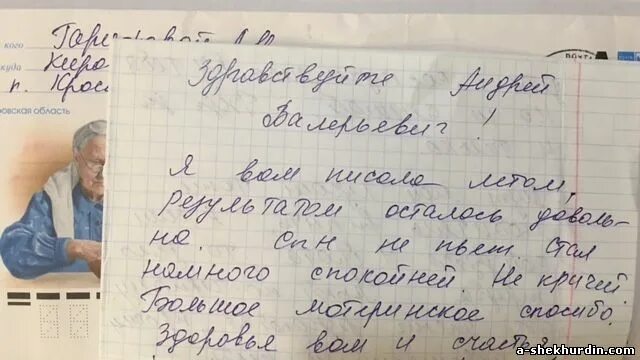 кого
куда
п.
Здравствуйте Андрей
Валерьевич!
Я вам писала летом,
Результатом осталась доволь-
на. Сын не пьет. Стал
намного спокойней. Не кричит
Большое материнское спасибо.
Здоровья вам и счастья
a-shekhurdin.com